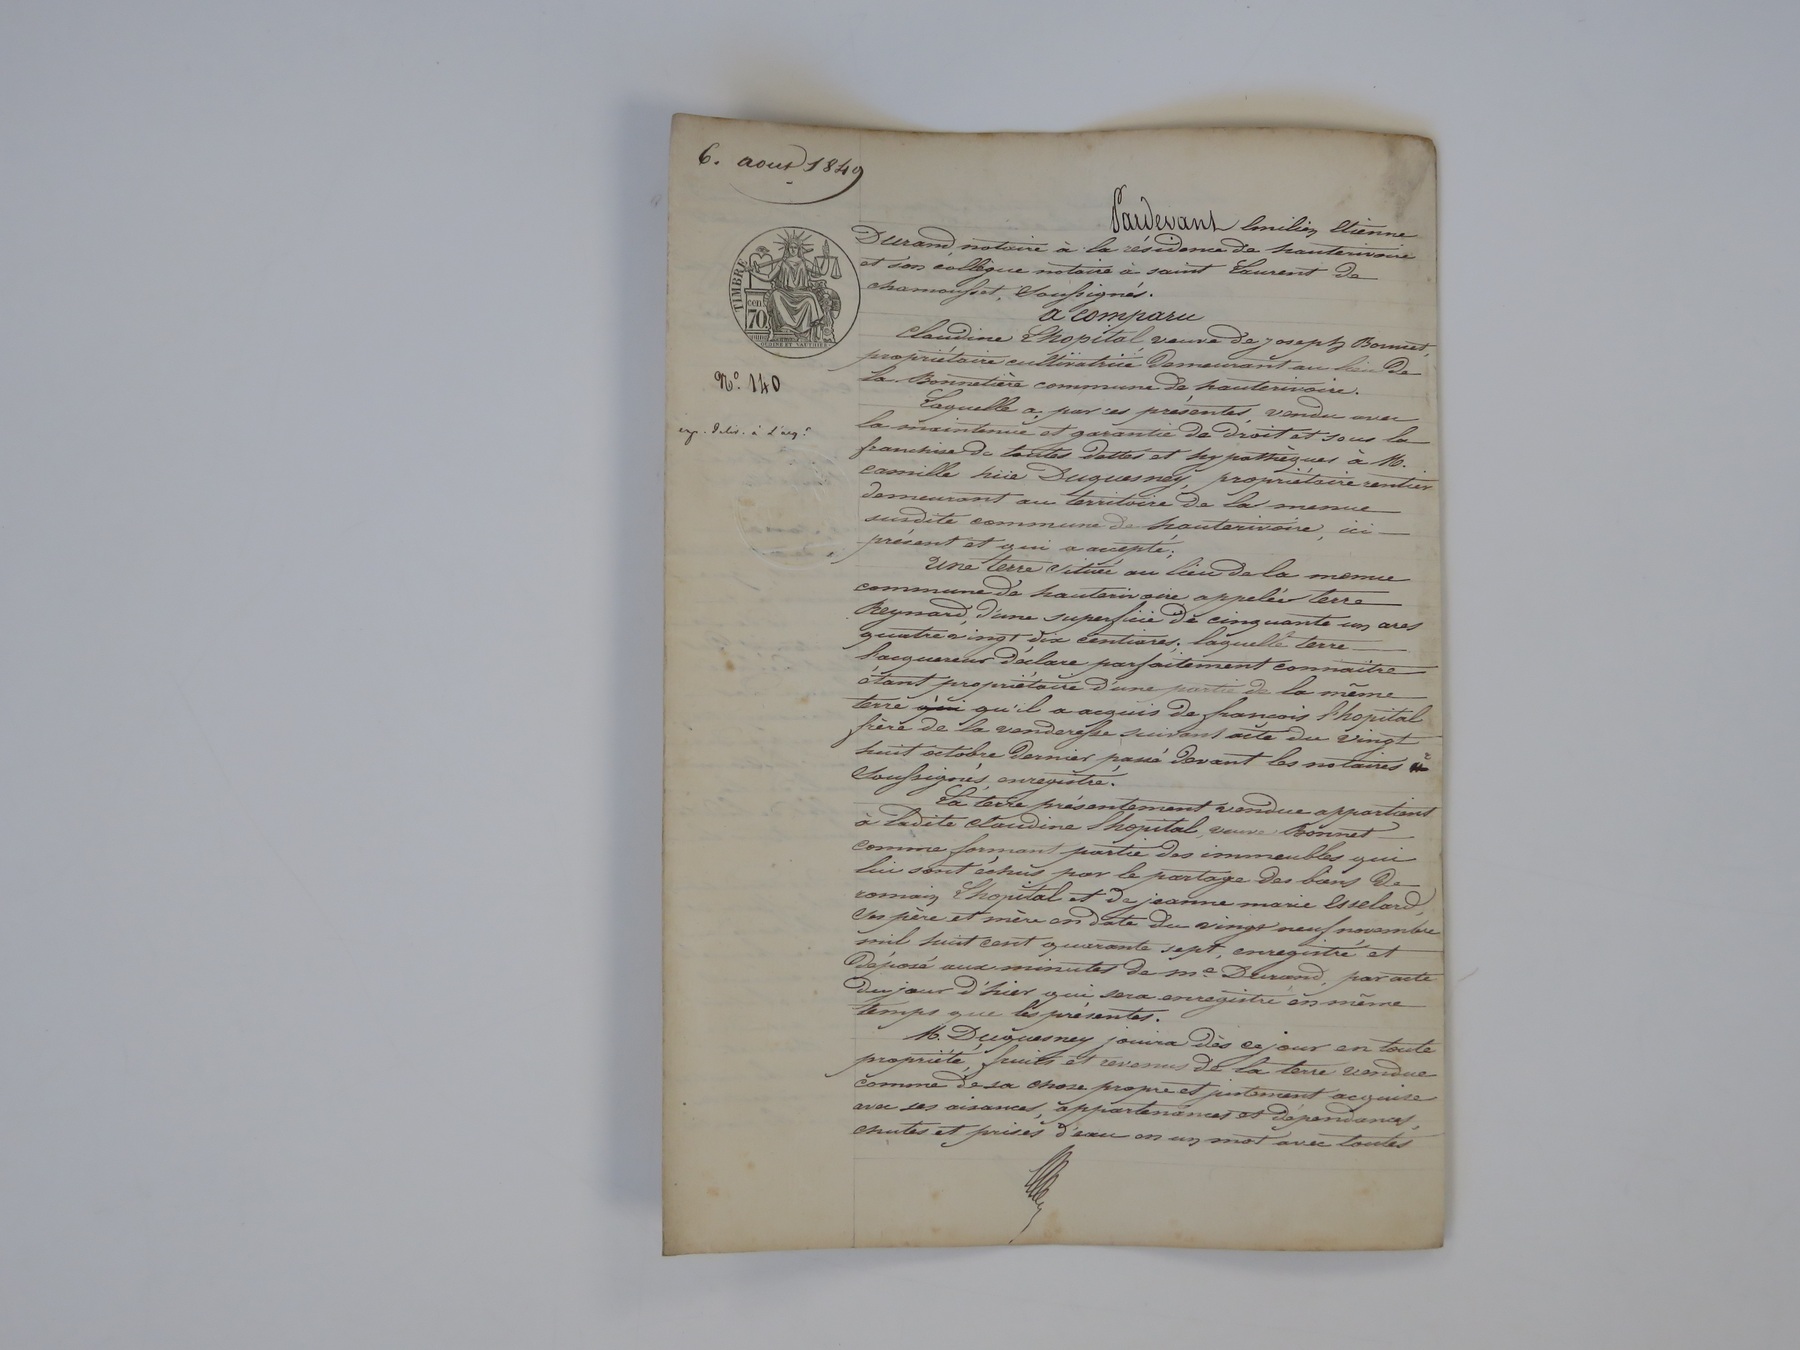 6. aout 1849
Pardevant Emilien Etienne
Durand, notaire à la résidence de hauterivoire
et son collègue notaire à saint Laurent de
chamousset, soussignés.
a comparu
TIMBRE
cen
70
N.º 140
exp. deliv. à l'acq.r
Claudine Lhopital, veuve de joseph Bonnet,
propriétaire cultivatrice demeurant au lieu de
la Bonnetière commune de hauterivoire.
Laquelle a, par ces présentes, vendu avec
la maintenue et garantie de droit et sous la
franchise de toutes dettes et hypothèques à M.
camille hüe Duquesney, propriétaire rentier
demeurant au territoire de la menue
susdite commune de hauterivoire, ici
présent et qui a accepté;
Une terre située au lieu de la menue
commune de hauterivoire appelée terre
Reynard, d'une superficie de cinquante un ares
quatre vingt dix centiares; laquelle terre
l'acquereur déclare parfaitement connaitre
étant propriétaire d'une partie de la même
terre qu'il a acquis de françois l'hopital
frère de la venderesse suivant acte du vingt
huit octobre dernier passé devant les notaires
soussignés, enregistré.
La terre présentement vendue appartient
à ladite claudine l'hopital, veuve Bonnet
comme formant partie des immeubles qui
lui sont échus par le partage des biens de
romain Lhopital et de jeanne marie Esselard,
ses père et mère en date du vingt neuf novembre
mil huit cent quarante sept, enregistré et
déposé aux minutes de me Durand, par acte
du jour d'hier qui sera enregistré en même
temps que les présentes.
M. Duquesney jouira dès ce jour en toute
propriété, fruits et revenus de la terre vendue
comme de sa chose propre et justement acquise
avec ses aisances, appartenances et dépendances,
chutes et prises d'eau en un mot avec toutes